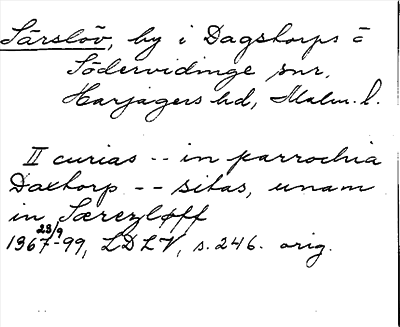 Särslöv, by i Dagstorps o
Södervidinge snr,
Harjagers hd, Malm. l.
II curias -- in parrochia
Daxtorp -- sitas, unam
in Særezløff
23/9
1367-99, LDLV, s. 246. orig.